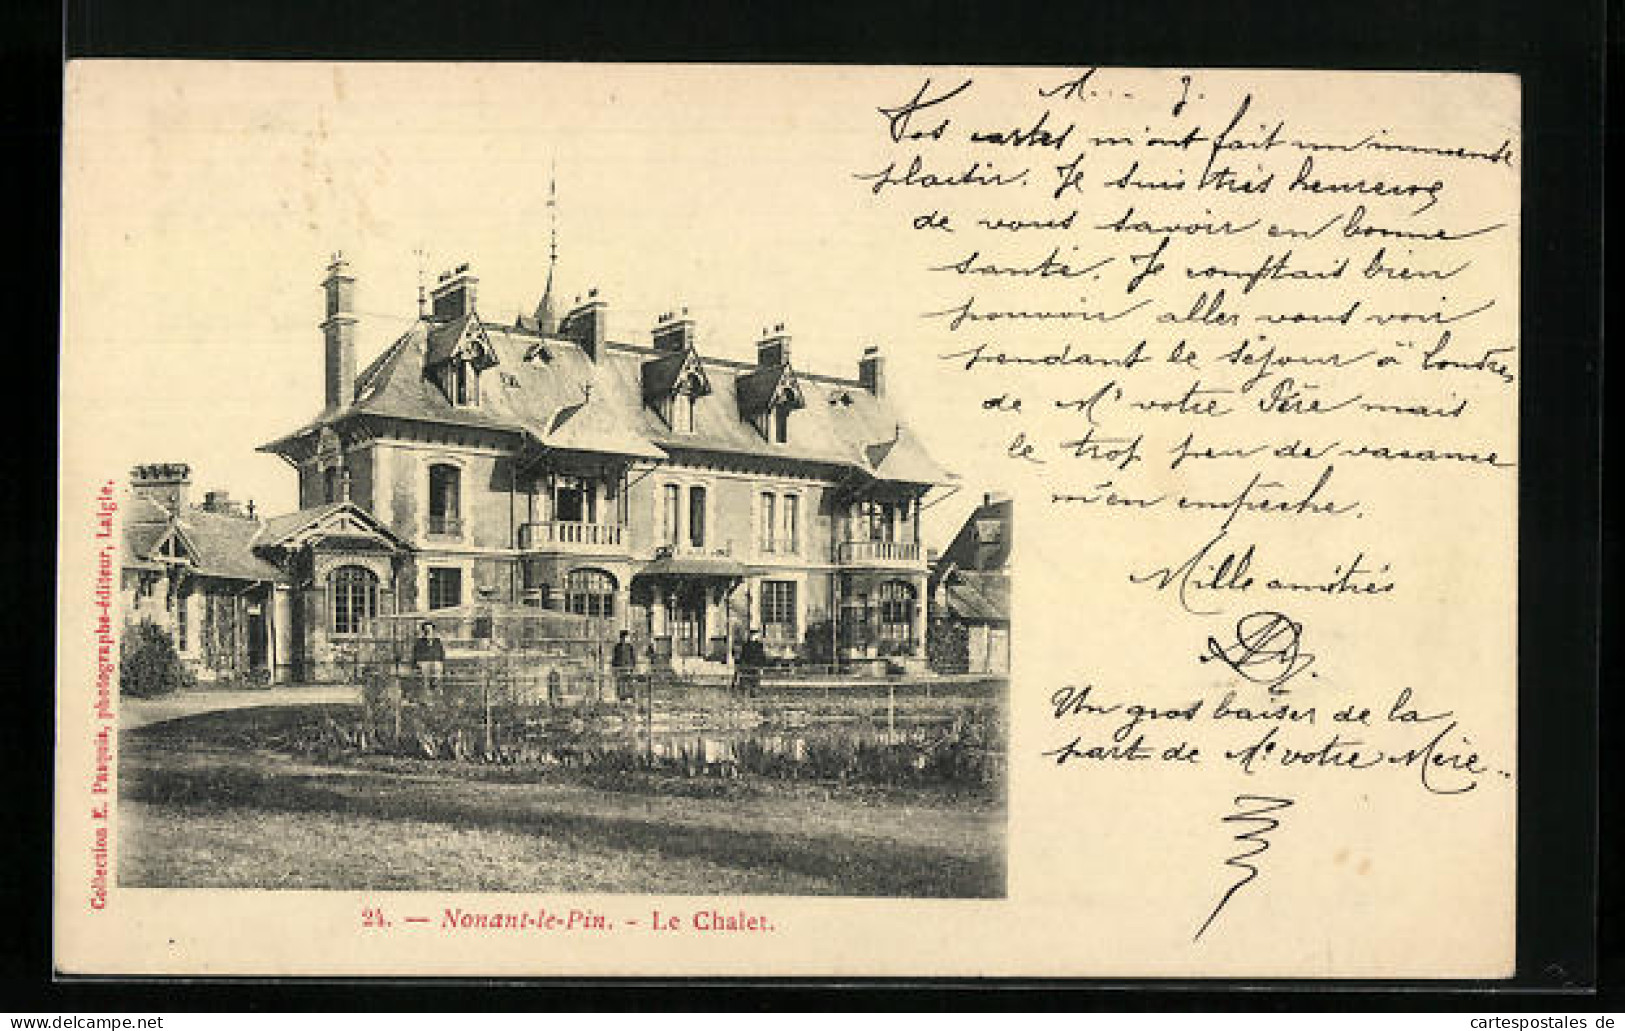 M... J.
Vos cartes m'ont fait un immense
plaisir. Je suis très heureux
de vous savoir en bonne
santé. Je comptais bien
pouvoir aller vous voir
pendant le séjour à Londres
de Mr votre Père mais
le trop peu de vacance
m'en empêche.
Mille amitiés
Un gros baiser de la
part de Me votre Mère..
Collection E. Pasquis, photographe-éditeur, Laigle.
24. — Nonant-le-Pin. - Le Chalet.
www.cartespostales.de
cartespostales de